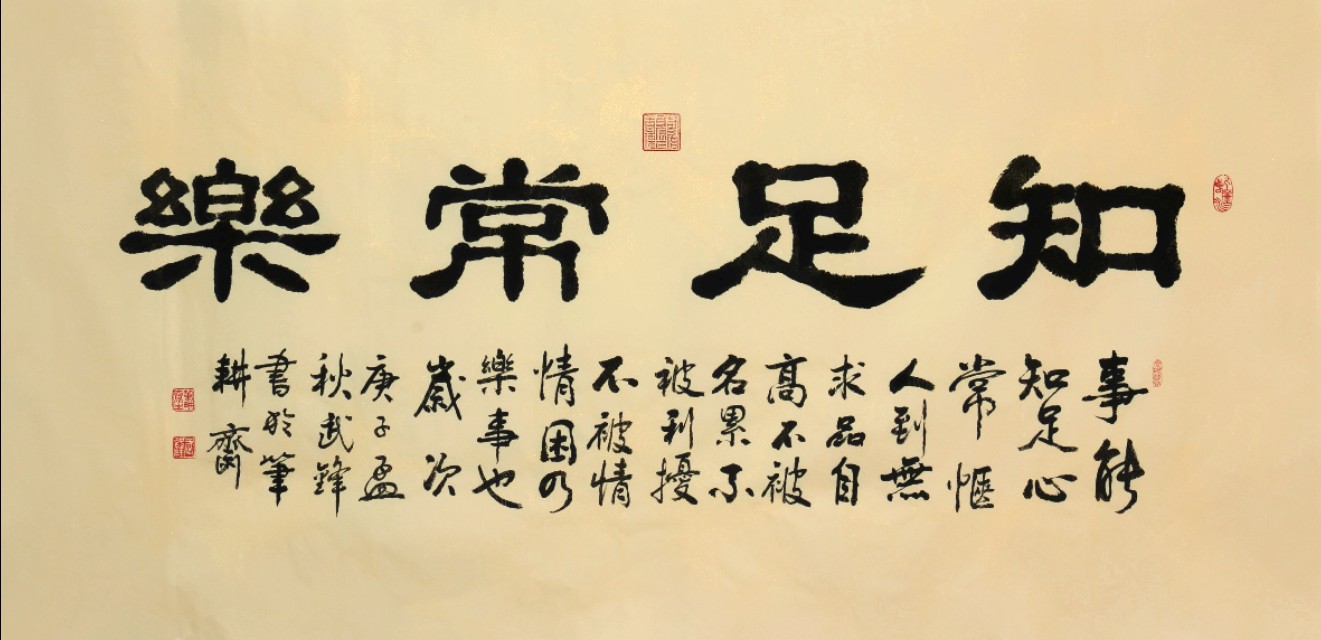 知足常樂
事能
知足心
常愜
人到無
求品自
高不被
名累不
被利擾
不被情
情困乃
樂事也
歲次
庚子孟
秋武鋒
書於筆
耕齋